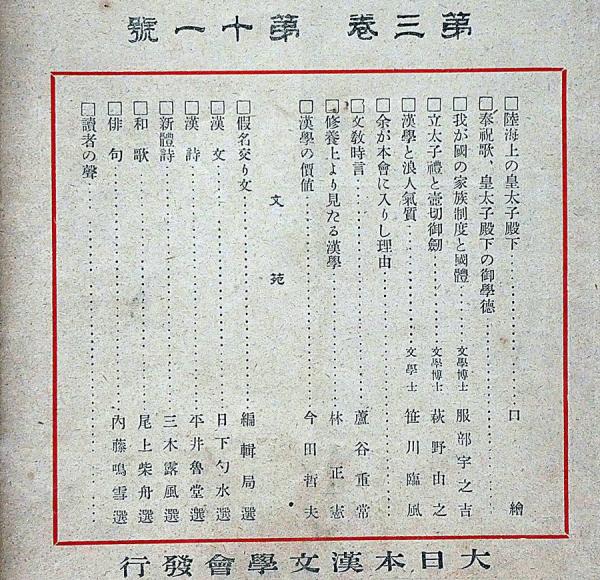 第三卷 第十一號
□陸海上の皇太子殿下……口繪
□奉祝歌、皇太子殿下の御學德……
□我が國の家族制度と國體……文學博士 服部宇之吉
□立太子禮と壺切御劒……文學博士 萩野由之
□漢學と浪人氣質……文學士 笹川臨風
□余が本會に入りし理由……
□文敎時言……蘆谷重常
□修養上より見たる漢學……林正憲
□漢學の價値……今田哲夫
文苑
□假名交り文……編輯局選
□漢文……日下勺水選
□漢詩……平井魯堂選
□新體詩……三木露風選
□和歌……尾上柴舟選
□俳句……內藤鳴雪選
□讀者の聲……
大日本漢文學會發行